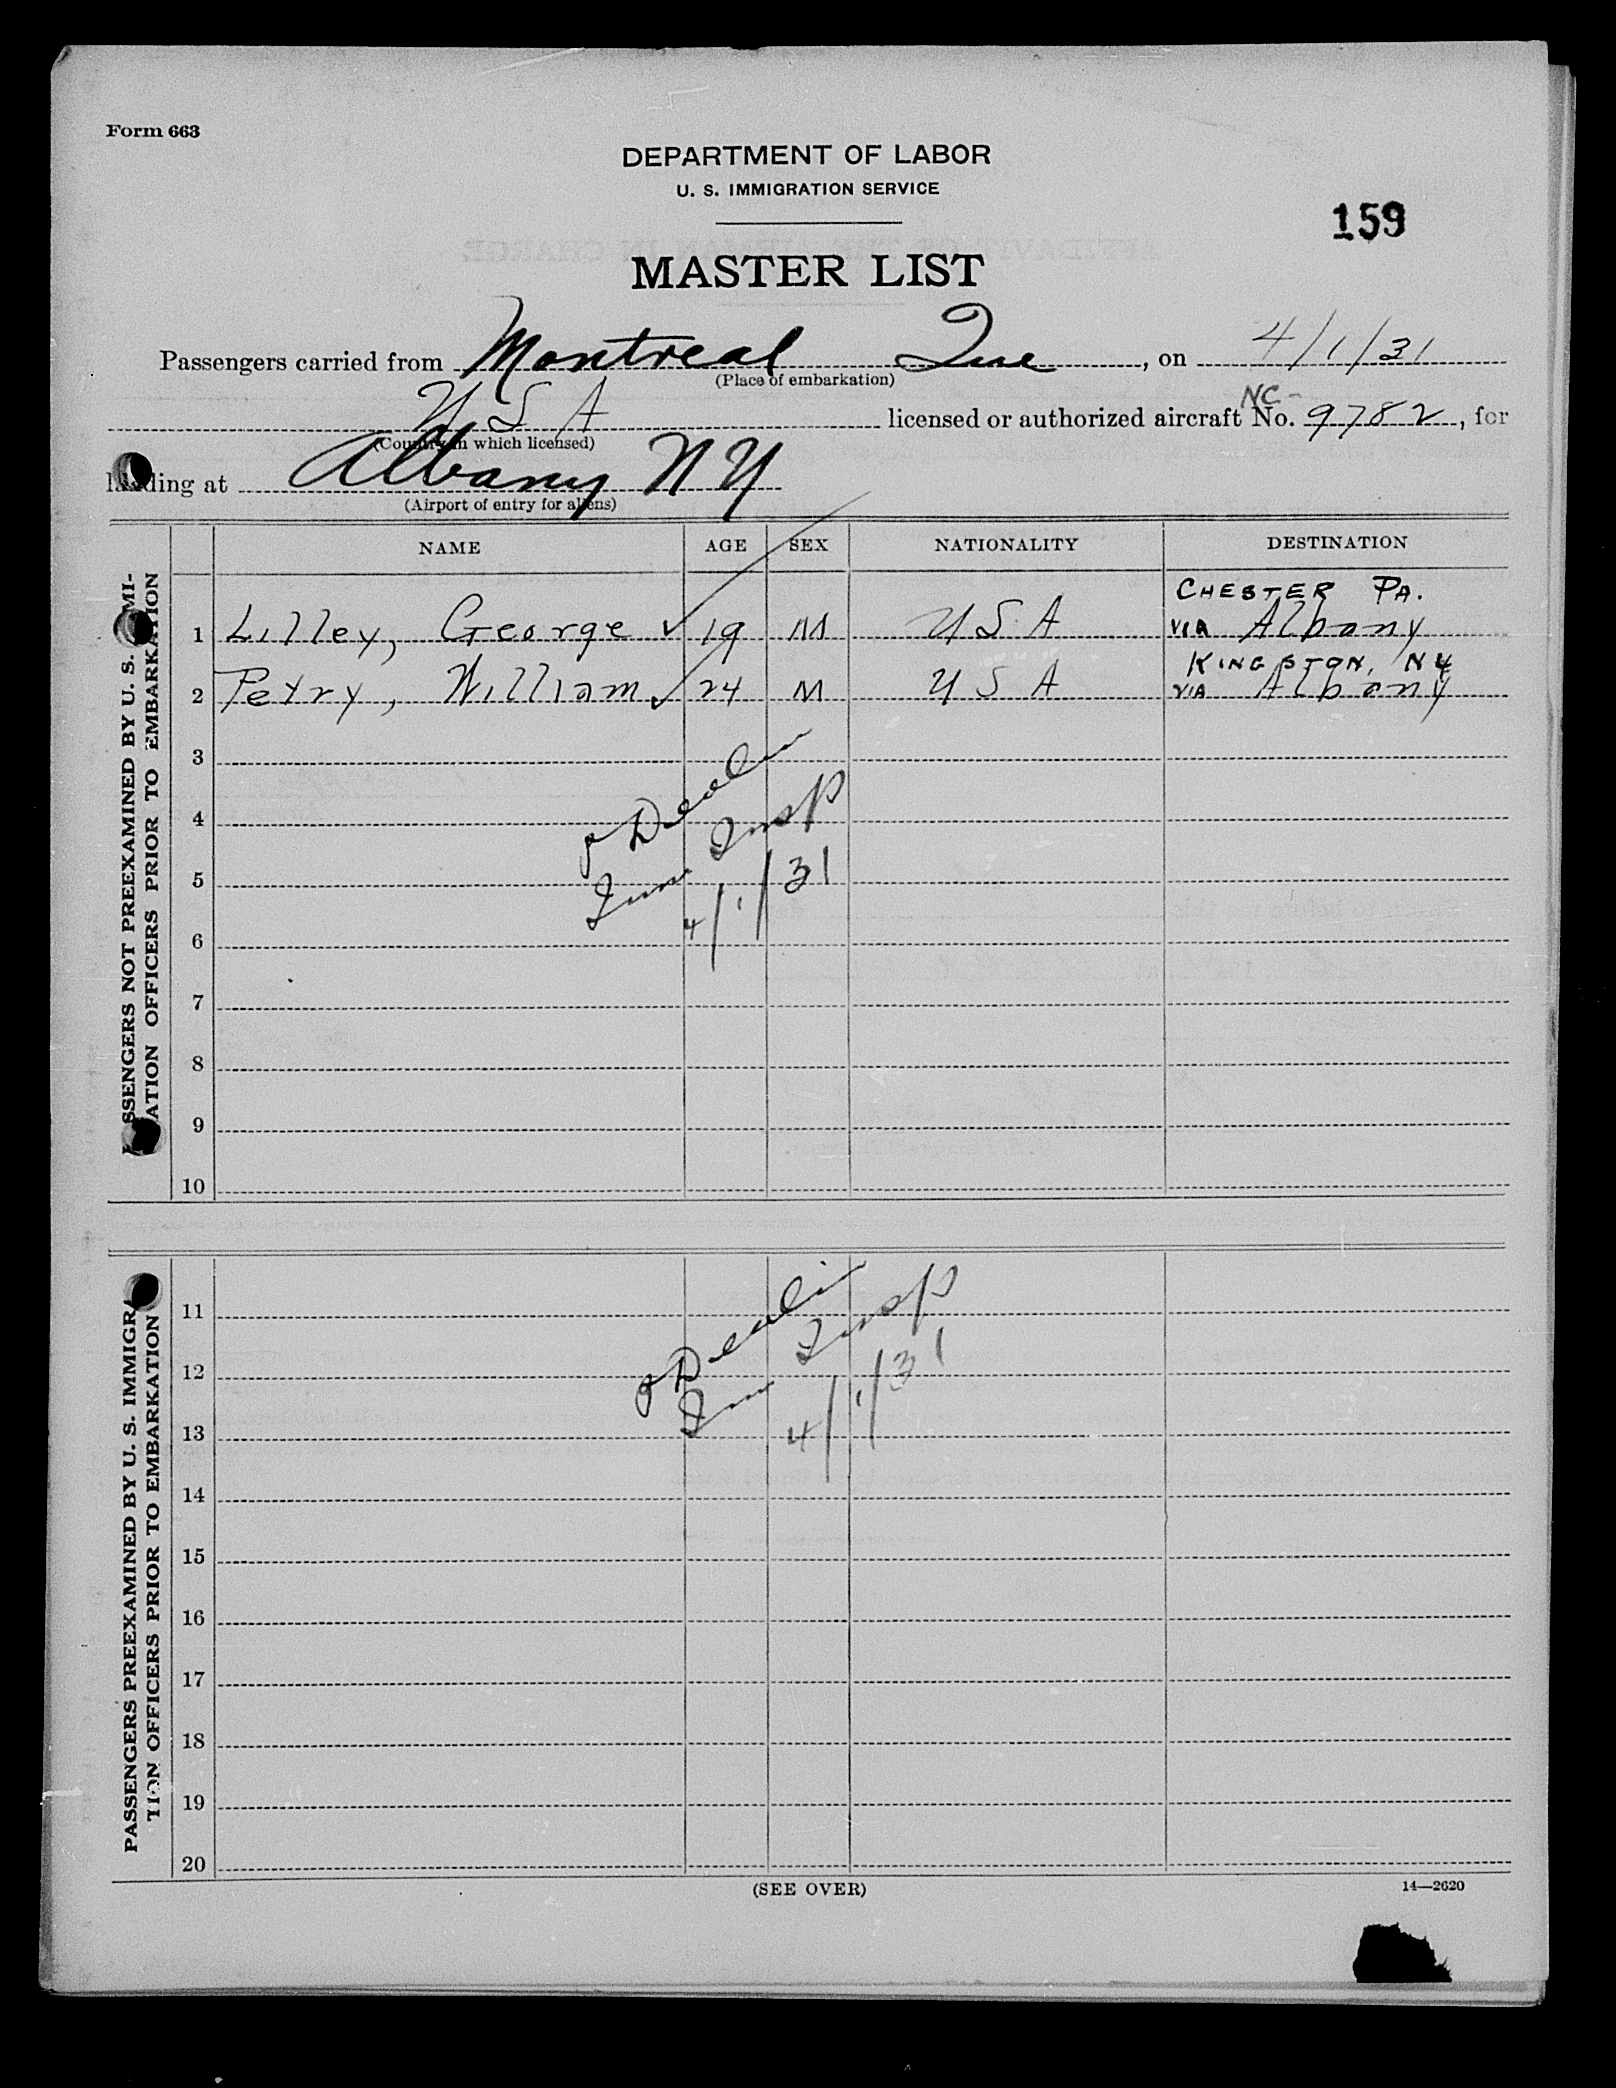 Form 663
DEPARTMENT OF LABOR
U. S. IMMIGRATION SERVICE
159
MASTER LIST
Passengers carried from Montreal Que, on 4/1/31
(Place of embarkation)
U S A licensed or authorized aircraft No. NC-9782, for
(Country in which licensed)
landing at Albany N Y
(Airport of entry for aliens)
NAME AGE SEX NATIONALITY DESTINATION
CHESTER PA.
1 Lilley, George ✓ 19 M U S A VIA Albany
KINGSTON, NY
2 Petry, William ✓ 24 M U S A VIA Albany
3
4
Insp
5
4/1/31
6
7
8
9
10
PASSENGERS NOT PREEXAMINED BY U. S. IMMI-
GRATION OFFICERS PRIOR TO EMBARKATION
11
Insp
12
4/1/31
13
14
15
16
17
18
19
20
PASSENGERS PREEXAMINED BY U. S. IMMIGRA-
TION OFFICERS PRIOR TO EMBARKATION
(SEE OVER)
14—2620